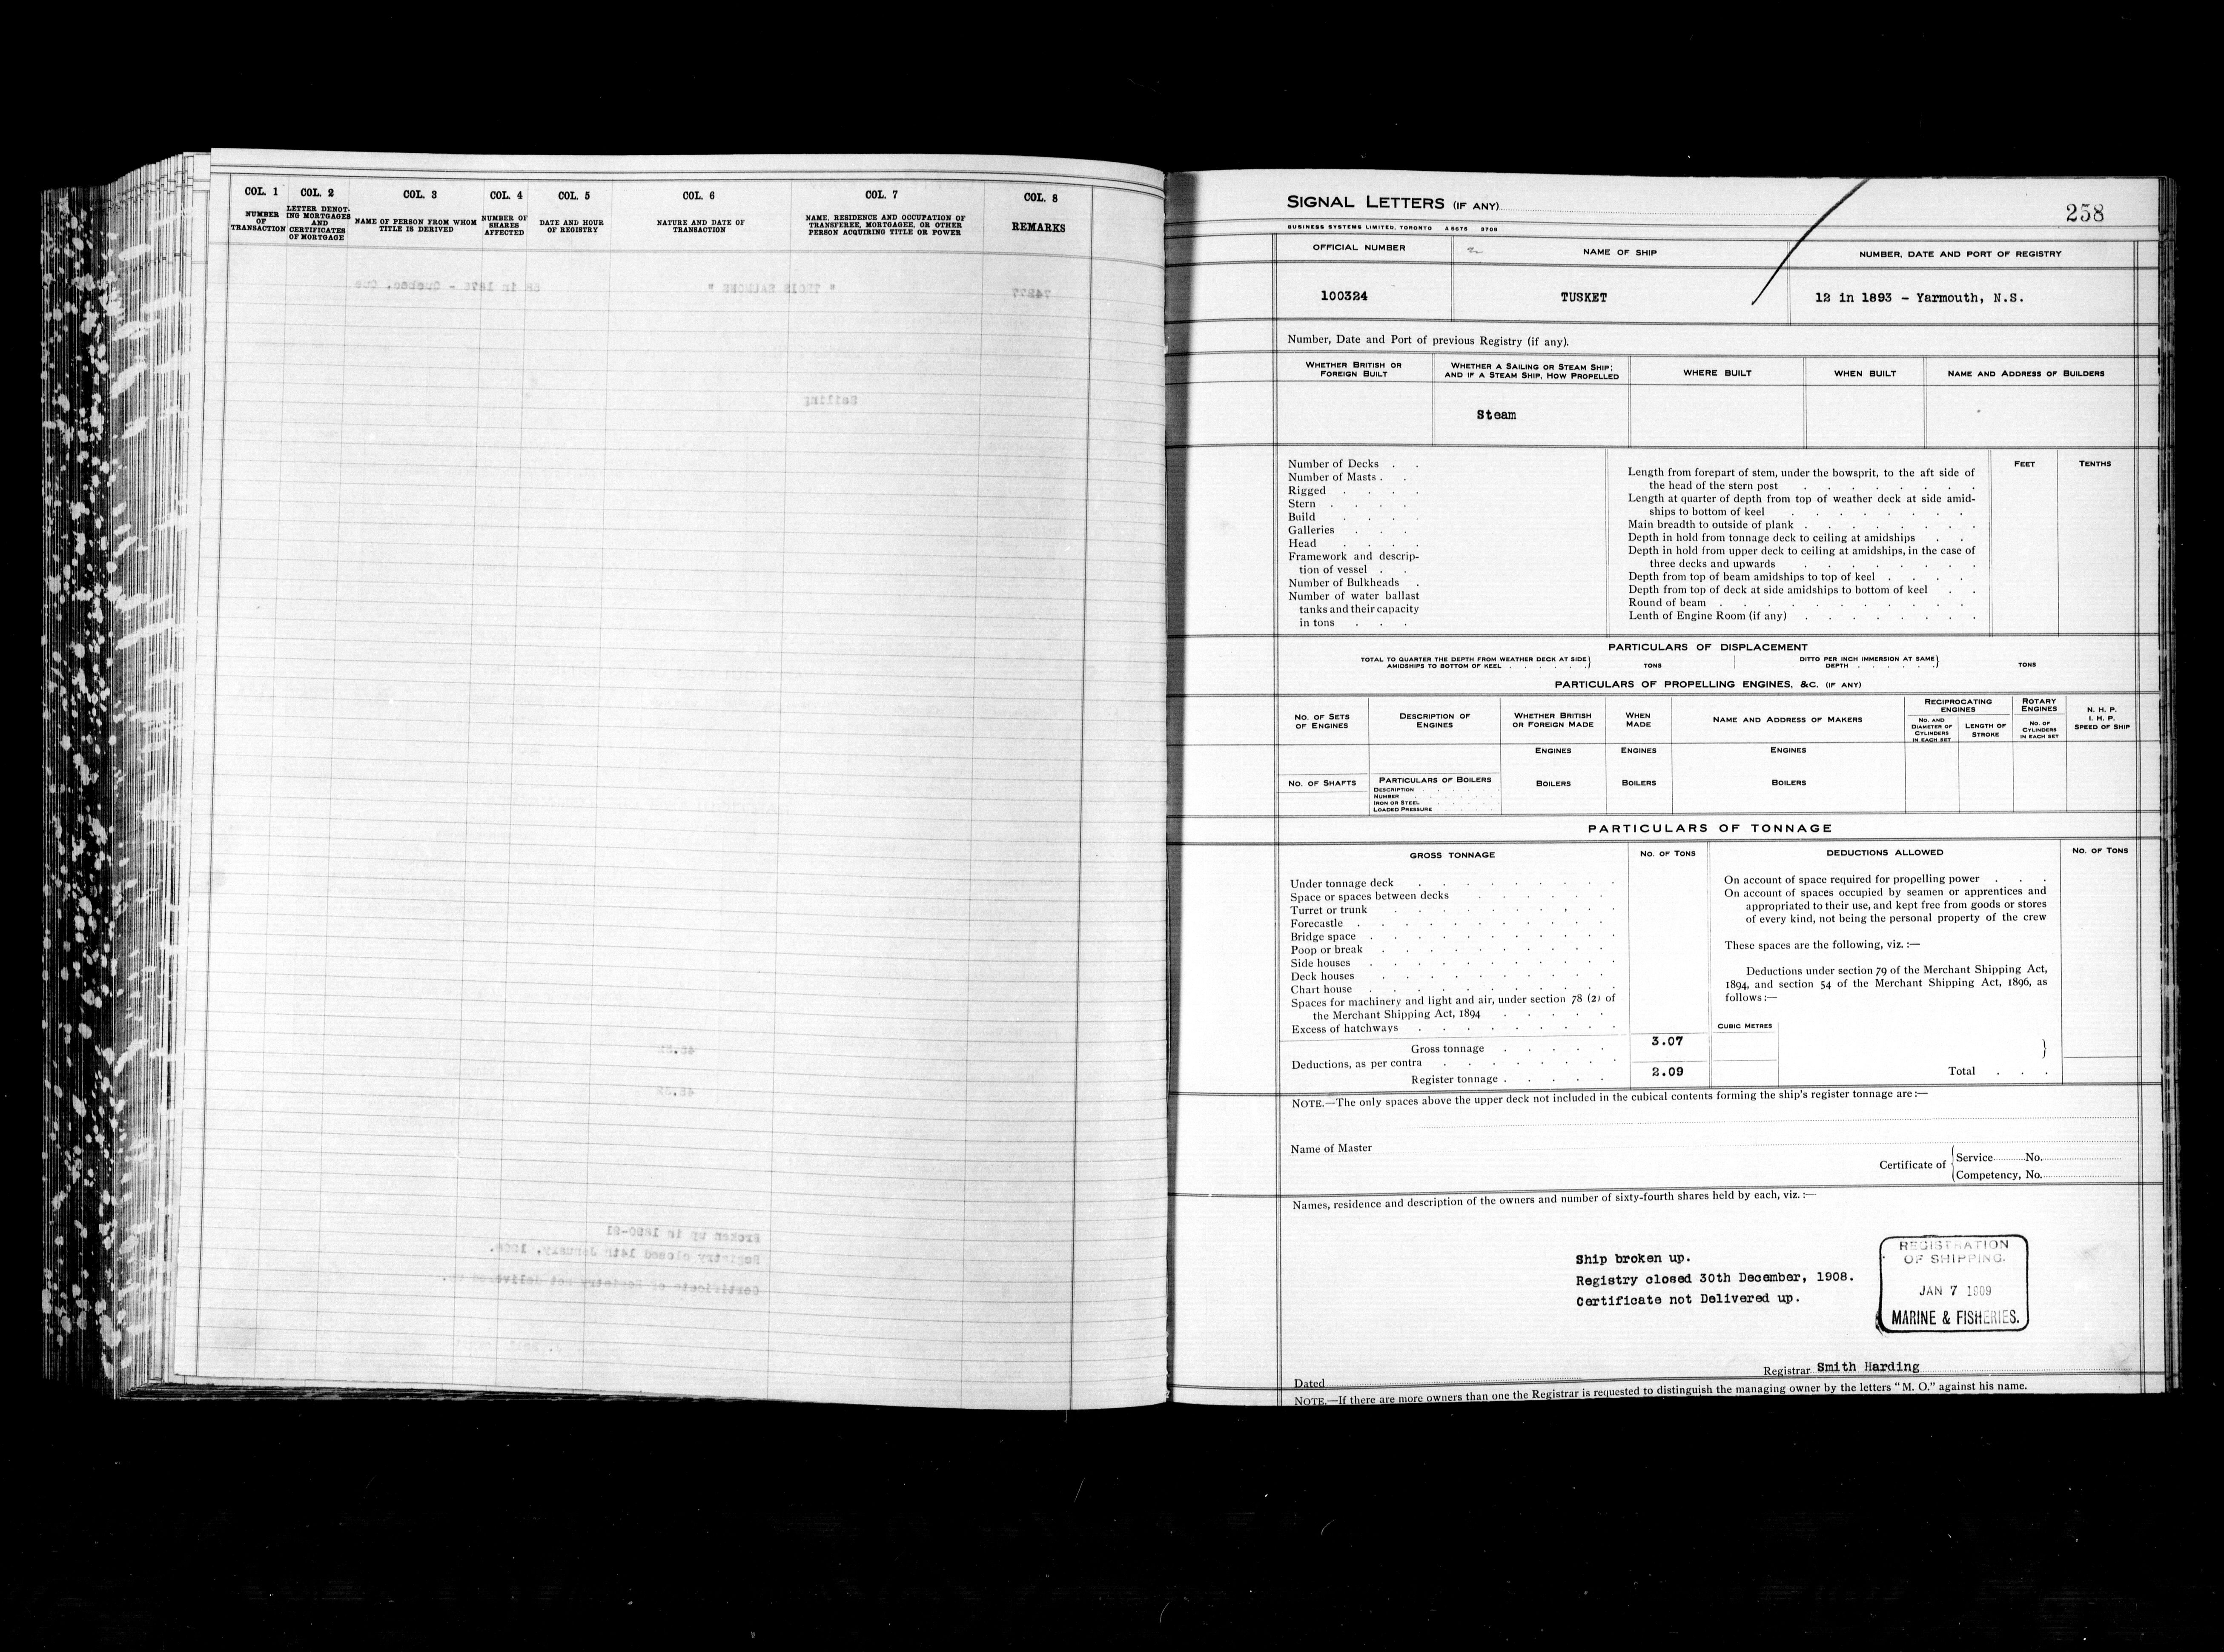 COL. 1
COL. 2
COL. 3
COL. 4
COL. 5
COL. 6
COL. 7
COL. 8
NUMBER OF TRANSACTION
LETTER DENOTING MORTGAGES AND CERTIFICATES OF MORTGAGE
NAME OF PERSON FROM WHOM TITLE IS DERIVED
NUMBER OF SHARES AFFECTED
DATE AND HOUR OF REGISTRY
NATURE AND DATE OF TRANSACTION
NAME, RESIDENCE AND OCCUPATION OF TRANSFEREE, MORTGAGEE, OR OTHER PERSON ACQUIRING TITLE OR POWER
REMARKS
SIGNAL LETTERS (IF ANY)
258
BUSINESS SYSTEMS LIMITED, TORONTO A5675 3709
OFFICIAL NUMBER
NAME OF SHIP
NUMBER, DATE AND PORT OF REGISTRY
100324
TUSKET
12 in 1893 - Yarmouth, N.S.
Number, Date and Port of previous Registry (if any).
WHETHER BRITISH OR FOREIGN BUILT
WHETHER A SAILING OR STEAM SHIP; AND IF A STEAM SHIP, HOW PROPELLED
WHERE BUILT
WHEN BUILT
NAME AND ADDRESS OF BUILDERS
Steam
Number of Decks . .
Number of Masts . .
Rigged . . . .
Stern . . . .
Build . . . .
Galleries . . .
Head . . . .
Framework and descrip-
tion of vessel . .
Number of Bulkheads .
Number of water ballast
tanks and their capacity
in tons . . .
FEET
TENTHS
Length from forepart of stem, under the bowsprit, to the aft side of
the head of the stern post
Length at quarter of depth from top of weather deck at side amid-
ships to bottom of keel
Main breadth to outside of plank
Depth in hold from tonnage deck to ceiling at amidships
Depth in hold from upper deck to ceiling at amidships, in the case of
three decks and upwards
Depth from top of beam amidships to top of keel
Depth from top of deck at side amidships to bottom of keel
Round of beam
Lenth of Engine Room (if any)
PARTICULARS OF DISPLACEMENT
TOTAL TO QUARTER THE DEPTH FROM WEATHER DECK AT SIDE AMIDSHIPS TO BOTTOM OF KEEL
TONS
DITTO PER INCH IMMERSION AT SAME DEPTH
TONS
PARTICULARS OF PROPELLING ENGINES, &C. (IF ANY)
NO. OF SETS OF ENGINES
DESCRIPTION OF ENGINES
WHETHER BRITISH OR FOREIGN MADE
WHEN MADE
NAME AND ADDRESS OF MAKERS
RECIPROCATING ENGINES
NO. AND DIAMETER OF CYLINDERS IN EACH SET
LENGTH OF STROKE
ROTARY ENGINES
NO. OF CYLINDERS IN EACH SET
N. H. P.
I. H. P.
SPEED OF SHIP
ENGINES
ENGINES
ENGINES
NO. OF SHAFTS
PARTICULARS OF BOILERS
DESCRIPTION
NUMBER
IRON OR STEEL
LOADED PRESSURE
BOILERS
BOILERS
BOILERS
PARTICULARS OF TONNAGE
GROSS TONNAGE
NO. OF TONS
DEDUCTIONS ALLOWED
NO. OF TONS
Under tonnage deck
Space or spaces between decks
Turret or trunk
Forecastle
Bridge space
Poop or break
Side houses
Deck houses
Chart house
Spaces for machinery and light and air, under section 78 (2) of
the Merchant Shipping Act, 1894
Excess of hatchways
Gross tonnage
3.07
Deductions, as per contra
Register tonnage
2.09
On account of space required for propelling power
On account of spaces occupied by seamen or apprentices and
appropriated to their use, and kept free from goods or stores
of every kind, not being the personal property of the crew
These spaces are the following, viz. :—
Deductions under section 79 of the Merchant Shipping Act,
1894, and section 54 of the Merchant Shipping Act, 1896, as
follows :—
CUBIC METRES
Total
NOTE.—The only spaces above the upper deck not included in the cubical contents forming the ship's register tonnage are :—
Name of Master
Certificate of
Service No.
Competency, No.
Names, residence and description of the owners and number of sixty-fourth shares held by each, viz. :—
Ship broken up.
Registry closed 30th December, 1908.
Certificate not Delivered up.
REGISTRATION
OF SHIPPING.
JAN 7 1909
MARINE & FISHERIES.
Registrar Smith Harding
Dated
NOTE.—If there are more owners than one the Registrar is requested to distinguish the managing owner by the letters "M. O." against his name.